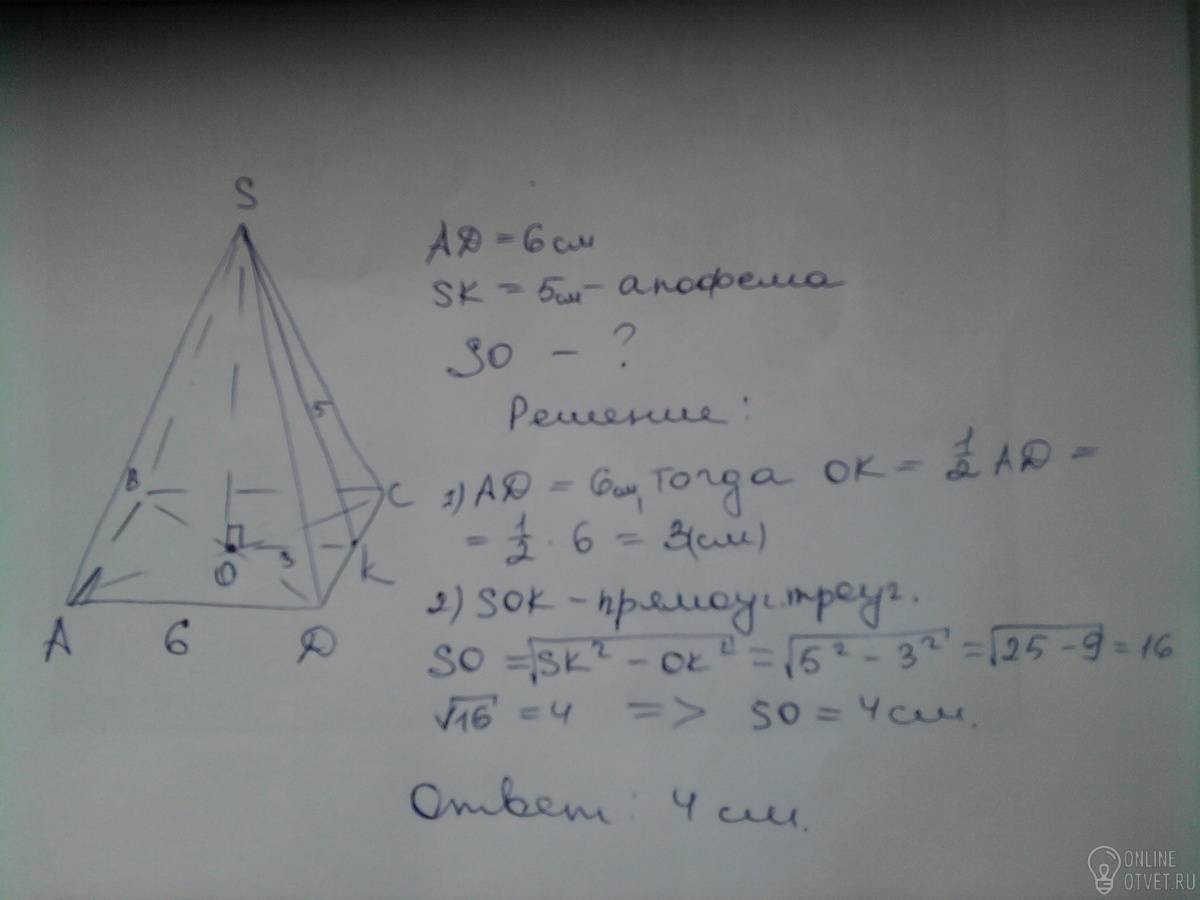 S
AD = 6 см
SK = 5см - апофема
SO - ?
Решение:
5
B
C
1) AD = 6см, тогда OK = 1/2 AD =
= 1/2 · 6 = 3(см)
O
3
K
2) SOK - прямоуг. треуг.
A
6
D
SO = √SK² - OK² = √5² - 3² = √25 - 9 = 16
√16 = 4 => SO = 4 см.
Ответ: 4 см.
ONLINE
OTVET.RU